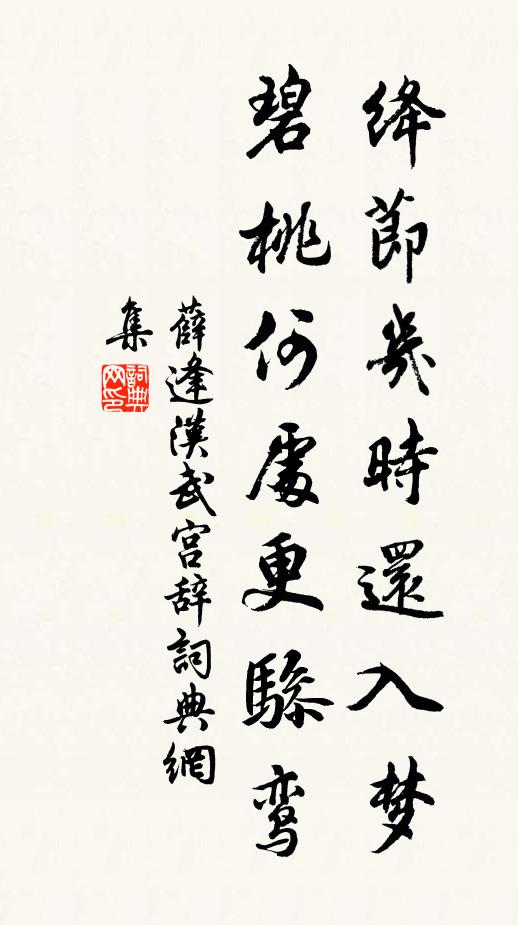 絳節幾時還入梦
碧桃何處更驂鸾
薛逢漢武宫辞詞典網
集
詞典网印